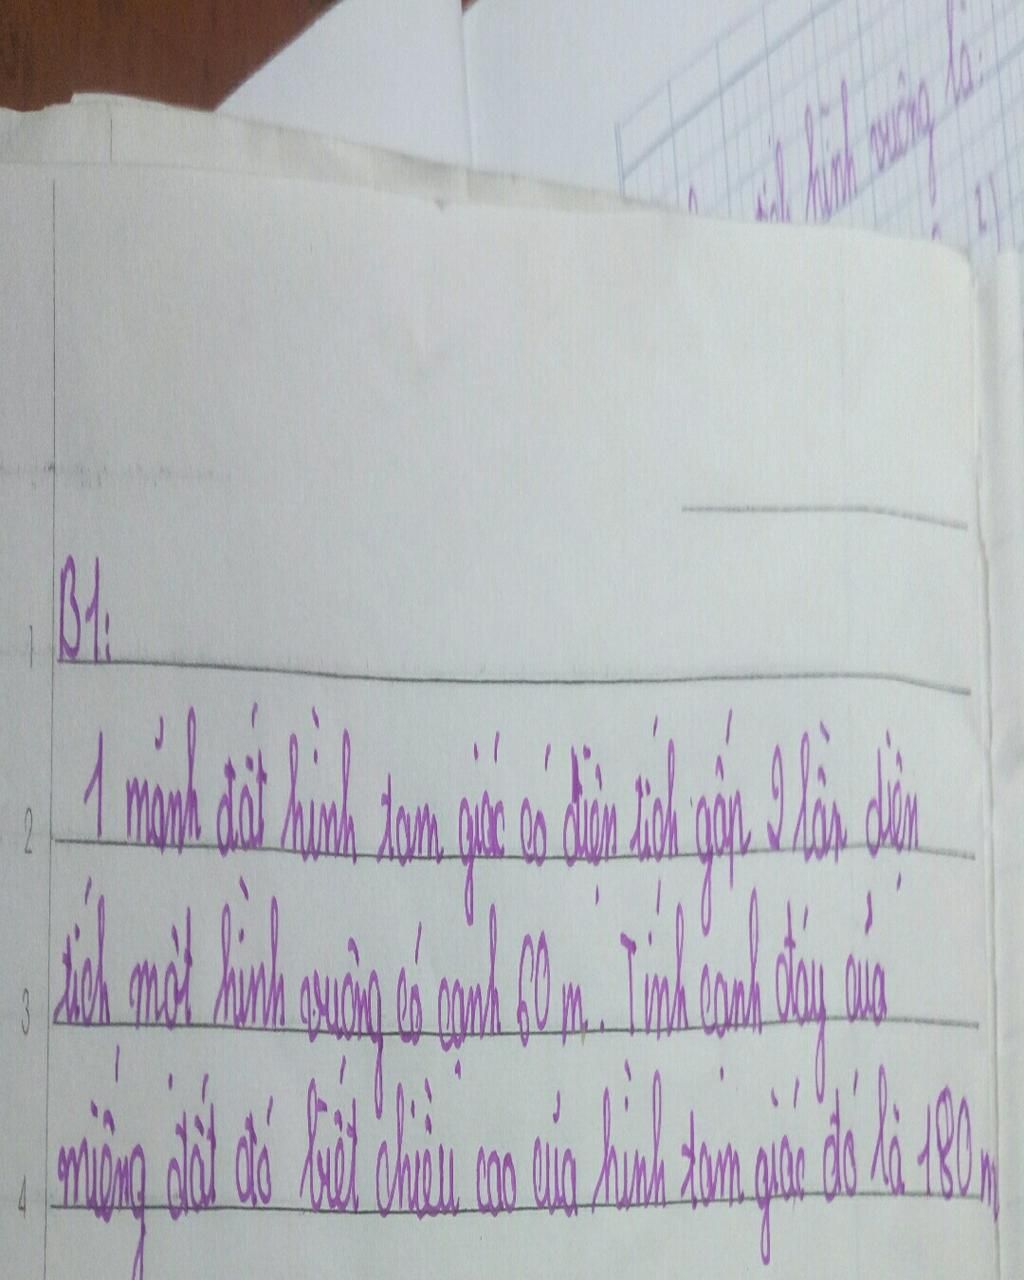 hình vuông là:
2)
B1:
1 mảnh đất hình tam giác có diện tích gấp 2 lần diện
tích một hình vuông có cạnh 60 m. Tính cạnh đáy của
miếng đất đó biết chiều cao của hình tam giác đó là 180 m
1
2
3
4